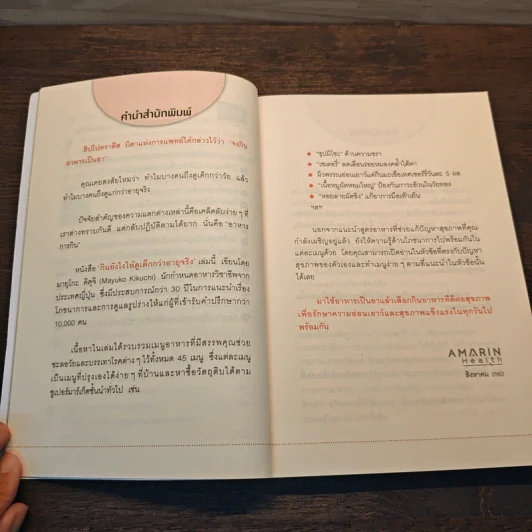 คำนำสำนักพิมพ์
ฮิปโปเครตีส บิดาแห่งการแพทย์ได้กล่าวไว้ว่า "จงกิน
อาหารเป็นยา"
คุณเคยสงสัยไหมว่า ทำไมบางคนถึงดูเด็กกว่าวัย แล้ว
ทำไมบางคนถึงดูแก่กว่าอายุจริง
ปัจจัยสำคัญของความแตกต่างเหล่านี้คือเคล็ดลับง่าย ๆ ที่
เราต่างทราบกันดี แต่กลับปฏิบัติตามได้ยาก นั่นคือ "อาหาร
การกิน"
หนังสือ "กินยังไงให้ดูเด็กกว่าอายุจริง" เล่มนี้ เขียนโดย
มายุโกะ คิคุจิ (Mayuko Kikuchi) นักกำหนดอาหารวิชาชีพจาก
ประเทศญี่ปุ่น ซึ่งมีประสบการณ์กว่า 30 ปีในการแนะนำเรื่อง
โภชนาการและการดูแลรูปร่างให้แก่ผู้ที่เข้ารับคำปรึกษากว่า
10,000 คน
เนื้อหาในเล่มได้รวบรวมเมนูอาหารที่มีสรรพคุณช่วย
ชะลอวัยและบรรเทาโรคต่าง ๆ ไว้ทั้งหมด 45 เมนู ซึ่งแต่ละเมนู
เป็นเมนูที่ปรุงเองได้ง่าย ๆ ที่บ้านและหาซื้อวัตถุดิบได้ตาม
ซูเปอร์มาร์เก็ตชั้นนำทั่วไป เช่น
• "ซุปมิโซะ" ต้านความชรา
• "เซเลอรี่" ลดเดือนรอยหมองคล้ำใต้ตา
• ผิวพรรณอ่อนเยาว์แค่กินมะเขือเทศเชอร์รี่วันละ 5 ผล
• "เนื้อหมูผัดหอมใหญ่" ป้องกันภาวะอ้วนในวัยทอง
• "หอยลายผัดขิง" แก้อาการมือเท้าเย็น
ฯลฯ
นอกจากแนะนำสูตรอาหารที่ช่วยแก้ปัญหาสุขภาพที่คุณ
กำลังเผชิญอยู่แล้ว ยังให้ความรู้ด้านโภชนาการไปพร้อมกันใน
แต่ละเมนูด้วย โดยคุณสามารถเปิดอ่านในหัวข้อที่ตรงกับปัญหา
สุขภาพของตัวเองและทำเมนูง่าย ๆ ตามที่แนะนำในหัวข้อนั้น
ได้เลย
มาใช้อาหารเป็นยาแล้วเลือกกินอาหารที่ดีต่อสุขภาพ
เพื่อรักษาความอ่อนเยาว์และสุขภาพแข็งแรงในทุกวันไป
พร้อมกัน
AMARIN
Health
สิงหาคม 2562